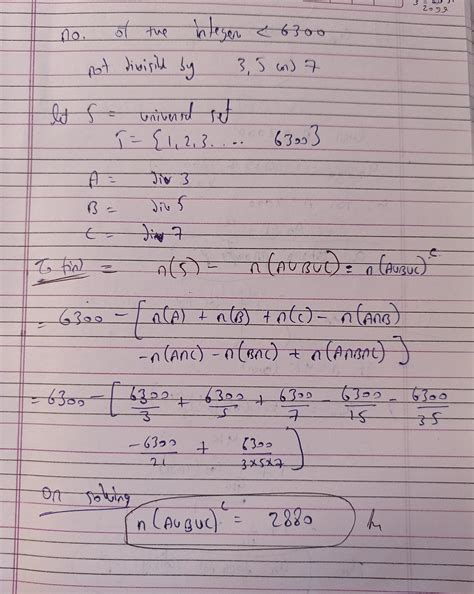 no. of the integer < 6300
not divisible by 3, 5 and 7
let S = universal set
S = {1, 2, 3.... 6300}
A = div 3
B = div 5
C = div 7
To find = n(S) - n(AUBUC) = n(AUBUC)ᶜ
= 6300 - [n(A) + n(B) + n(C) - n(A∩B)
- n(A∩C) - n(B∩C) + n(A∩B∩C)]
= 6300 - [6300/3 + 6300/5 + 6300/7 - 6300/15 - 6300/35
- 6300/21 + 6300/3×5×7]
On solving
n(AUBUC)ᶜ = 2880